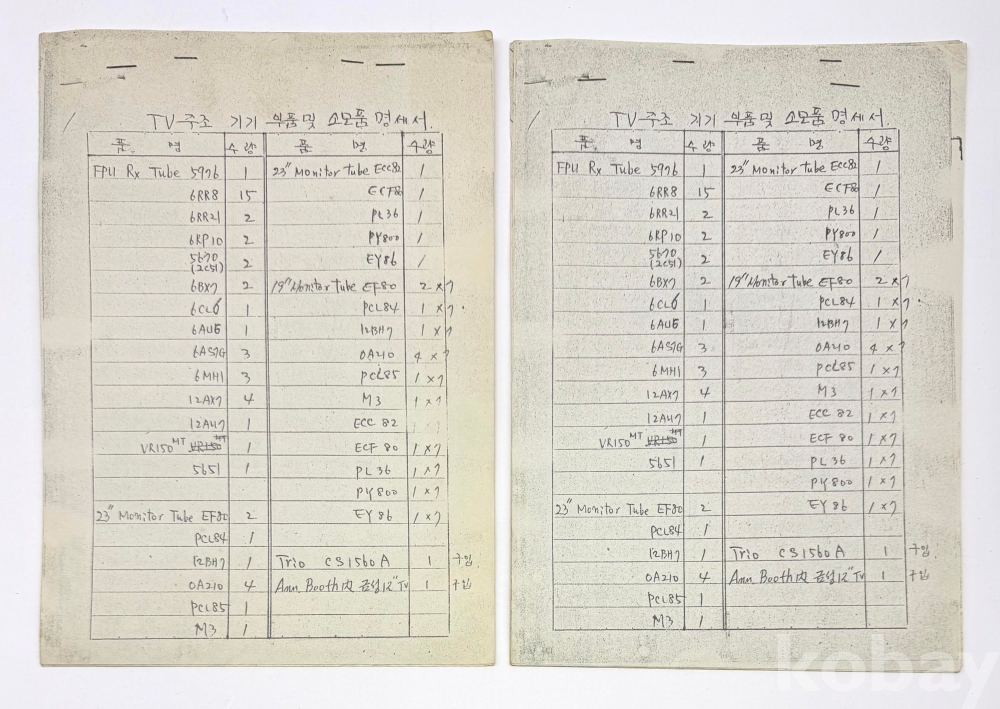 TV 주조 기기 부품 및 소모품 명세서.
품 명 수량 품 명 수량
FPU Rx Tube 5976 1 23" Monitor tube ECC82 1
6RR8 15 ECF80 1
6RR21 2 PL36 1
6RP10 2 PY800 1
5670 (2C51) 2 EY86 1
6BX7 2 19" Monitor tube EF80 2 x 7
6CL6 1 PCL84 1 x 7
6AU6 1 12BH7 1 x 7
6AS7G 3 OA210 4 x 7
6MH1 3 PCL85 1 x 7
12AX7 4 M3 1 x 7
12AU7 1 ECC 82 1 x 7
VR150 MT 1 ECF 80 1 x 7
5651 1 PL 36 1 x 7
PY 800 1 x 7
23" Monitor Tube EF80 2 EY 86 1 x 7
PCL84 1
12BH7 1 Trio CS1560A 1 구입
OA210 4 Ann. Booth 內 금성 12" TV 1 구입
PCL85 1
M3 1
TV 주조 기기 부품 및 소모품 명세서.
품 명 수량 품 명 수량
FPU Rx Tube 5976 1 23" Monitor tube ECC82 1
6RR8 15 ECF80 1
6RR21 2 PL36 1
6RP10 2 PY800 1
5670 (2C51) 2 EY86 1
6BX7 2 19" Monitor tube EF80 2 x 7
6CL6 1 PCL84 1 x 7
6AU6 1 12BH7 1 x 7
6AS7G 3 OA210 4 x 7
6MH1 3 PCL85 1 x 7
12AX7 4 M3 1 x 7
12AU7 1 ECC 82 1 x 7
VR150 MT 1 ECF 80 1 x 7
5651 1 PL 36 1 x 7
PY 800 1 x 7
23" Monitor Tube EF80 2 EY 86 1 x 7
PCL84 1
12BH7 1 Trio CS1560A 1 구입
OA210 4 Ann. Booth 內 금성 12" TV 1 구입
PCL85 1
M3 1
kobay